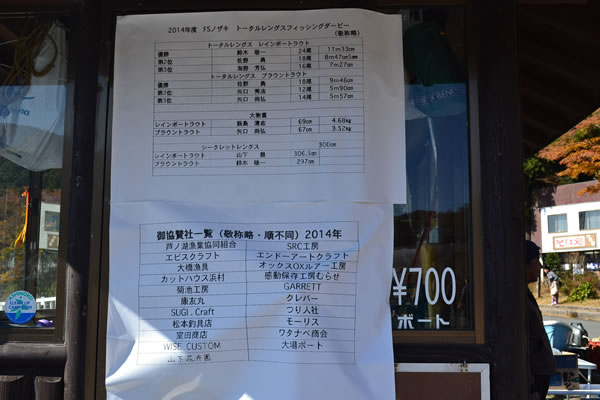 2014年度 FSノザキ トータルレングスフィッシングダービー
(敬称略)
トータルレングス レインボートラウト
優勝 鈴木 敬一 24尾 11m33cm
第2位 佐野 勇 18尾 8m47cm5mm
第3位 海野 芳弘 16尾 7m27cm
トータルレングス ブラウントラウト
優勝 佐野 勇 18尾 9m46cm
第2位 矢口 秀浩 12尾 5m90cm
第3位 矢口 尚弘 14尾 5m57cm
大物賞
レインボートラウト 飯島 清志 69cm 4.68kg
ブラウントラウト 矢口 尚弘 67cm 3.52kg
シークレットレングス 300cm
レインボートラウト 山下 306.5cm
ブラウントラウト 鈴木 敬一 297cm
御協賛社一覧(敬称略・順不同)2014年
芦ノ湖漁業協同組合 SRC工房
エビスクラフト エンドーアートクラフト
大橋漁具 オックスOXルアー工房
カットハウス浜村 感動保存工房むらせ
菊池工房 GARRETT
康友丸 クレバー
SUGI.Craft つり人社
松本釣具店 モーリス
室田商店 ワタナベ商会
WISE CUSTOM 大場ボート
山下花卉園
¥700
ボート